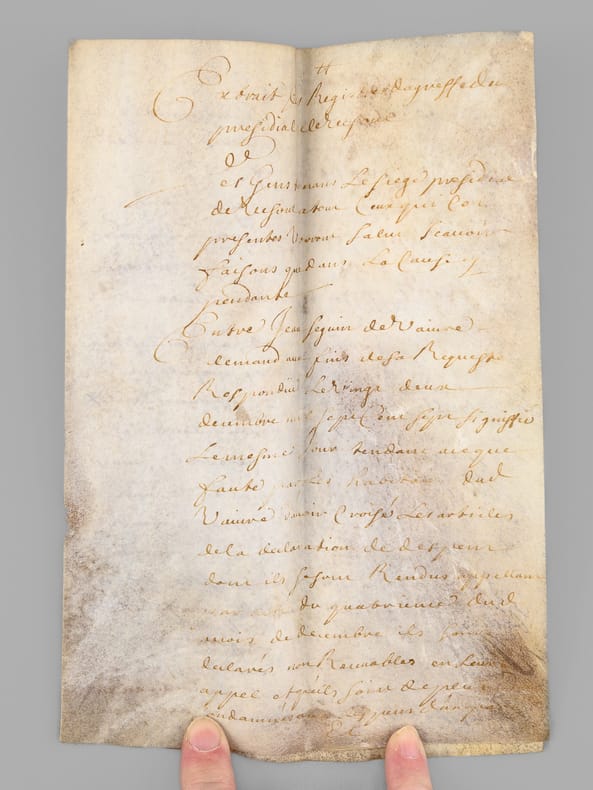 Extrait des Registres du greffe du
presidial de Vesoul
Les Gens tenans Le siege presidial
de Vesoul a tous Ceux qui Ces
presentes Verront salut scauoir
faisons que dans La Cause cy
pendante
Entre Jean seguin de Vaiure
demand aux fins de sa Requeste
Respondüe Le Vingt deux
decembre mil sept Cent sept signiffié
Le mesme jour tendant a ce que
faute par les habitans dud
Vaiure d'avoir Croisé Les articles
de la declaration de despens
dont ils se sont Rendus appellans
par acte du quatrieme dud
mois de decembre ils soient
declarés non Receuables en Leur
appel et qu'ils soient de plus
condamnés aux despens